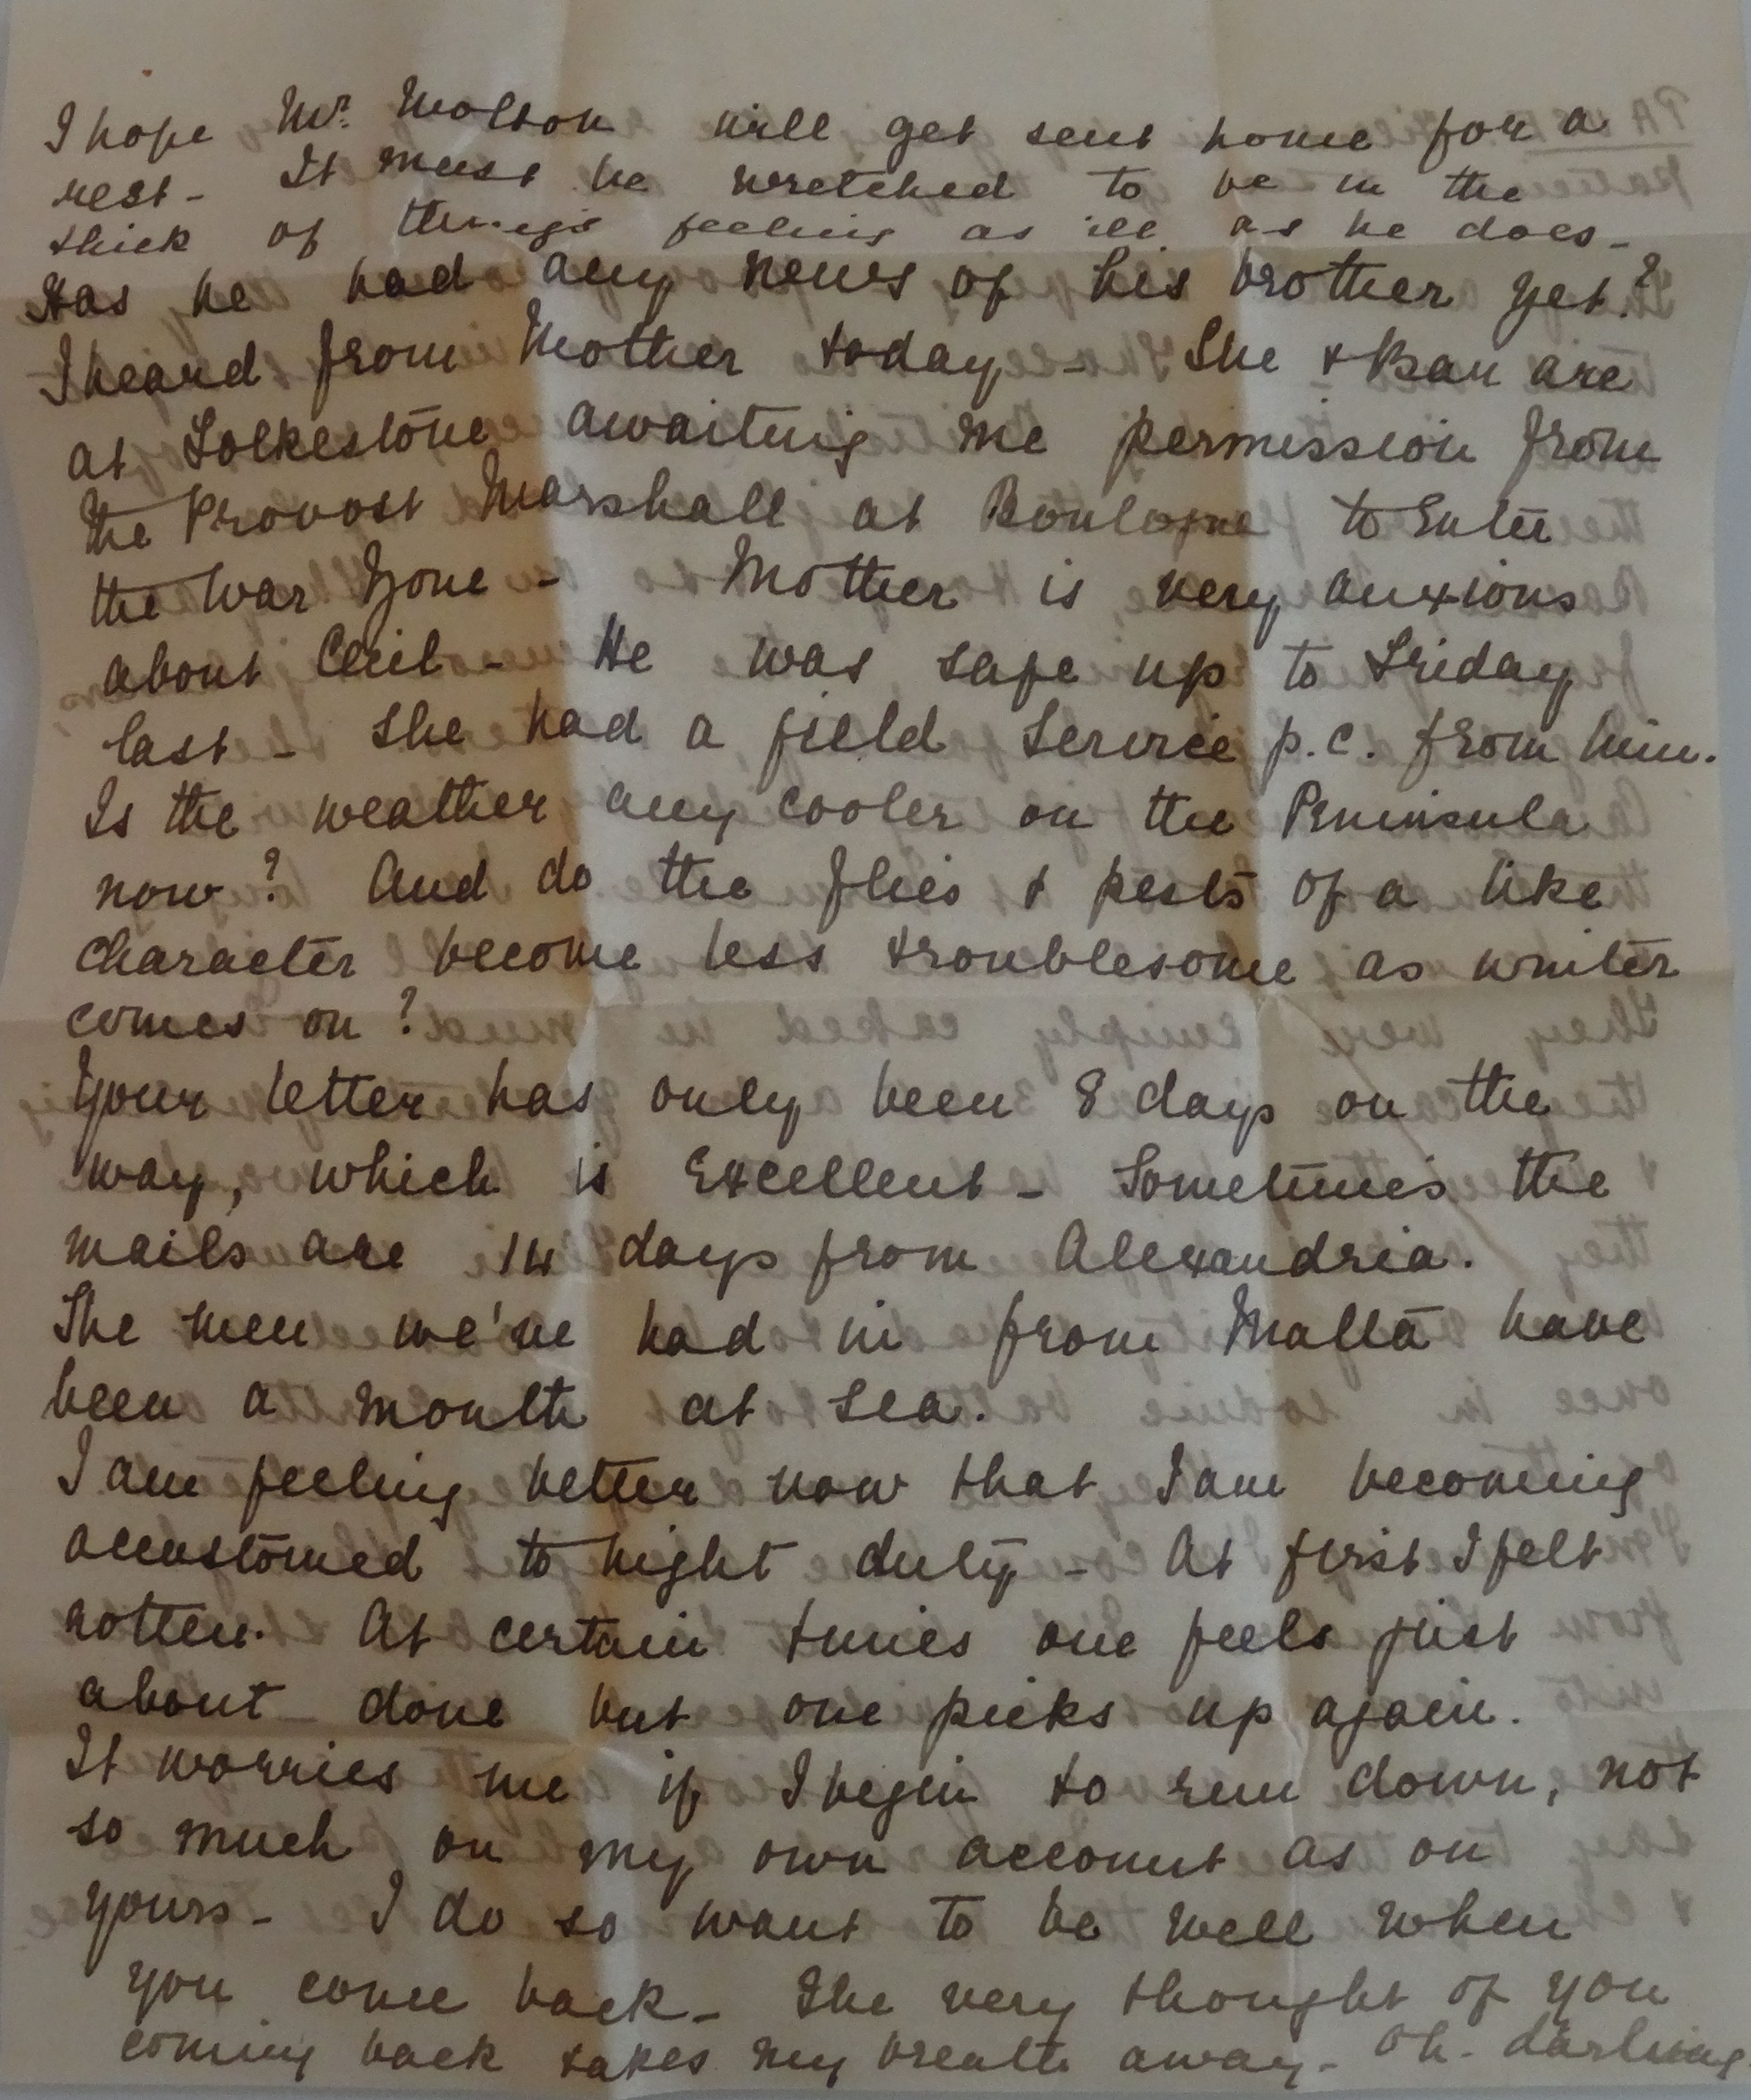 I hope Mr. Molson will get sent home for a
rest - It must be wretched to be in the
thick of things feeling as ill as he does -
Has he had any news of his brother yet?
I heard from Mother today - She & Bau are
at Folkestone awaiting me permission from
the Provost Marshall at Boulogne to Enter
the War Zone - Mother is very anxious
about Cecil - He was safe up to Friday
last - She had a field Service p.c. from him.
Is the weather any cooler on the Peninsula
now? And do the flies & pests of a like
character become less troublesome as winter
comes on?
Your letter has only been 8 days on the
way, which is Excellent - Sometimes the
mails are 14 days from Alexandria.
The men we've had in from Malta have
been a month at sea.
I am feeling better now that I am becoming
accustomed to night duty - At first I felt
rotten. At certain times one feels just
about done but one picks up again.
It worries me if I begin to run down, not
so much on my own account as on
yours - I do so want to be well when
you come back - The very thought of you
coming back takes my breath away - Oh - darling